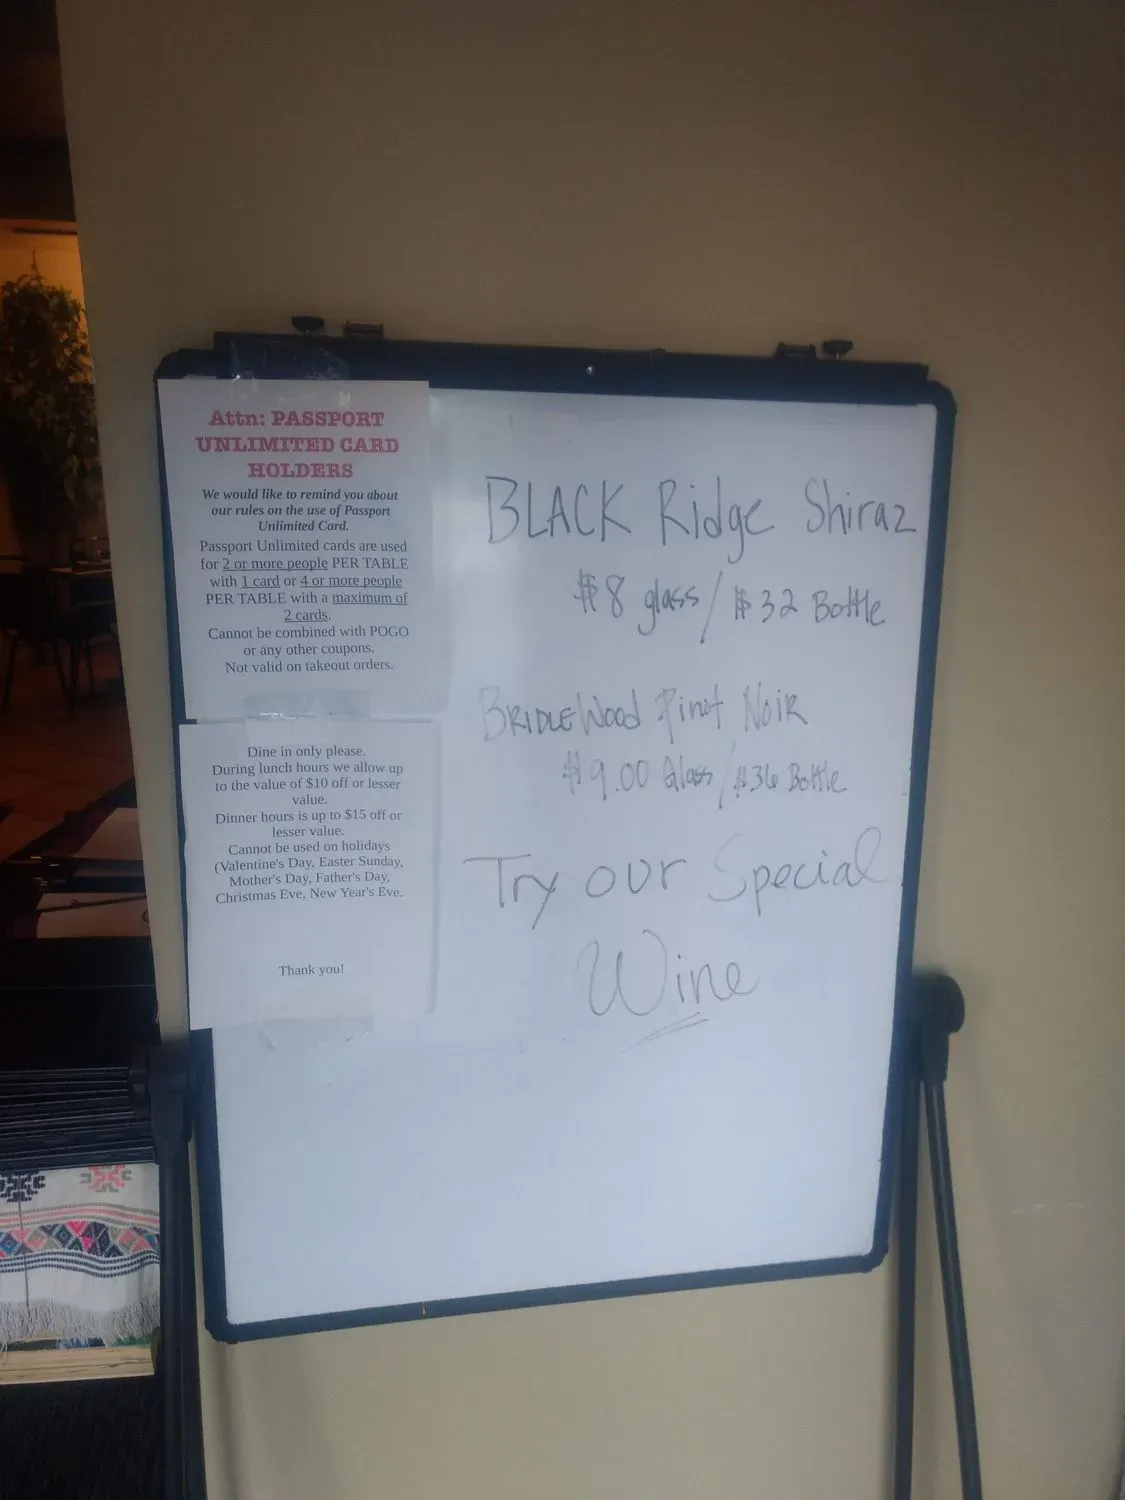 Attn: PASSPORT
UNLIMITED CARD
HOLDERS
We would like to remind you about
our rules on the use of Passport
Unlimited Card.
Passport Unlimited cards are used
for 2 or more people PER TABLE
with 1 card or 4 or more people
PER TABLE with a maximum of
2 cards.
Cannot be combined with POGO
or any other coupons.
Not valid on takeout orders.
Dine in only please.
During lunch hours we allow up
to the value of $10 off or lesser
value.
Dinner hours is up to $15 off or
lesser value.
Cannot be used on holidays
(Valentine's Day, Easter Sunday,
Mother's Day, Father's Day,
Christmas Eve, New Year's Eve.
Thank you!
BLACK Ridge Shiraz
$8 glass / $32 Bottle
BRIDLEWood Pinot NoiR
$9.00 Glass / $36 Bottle
Try our Special
Wine